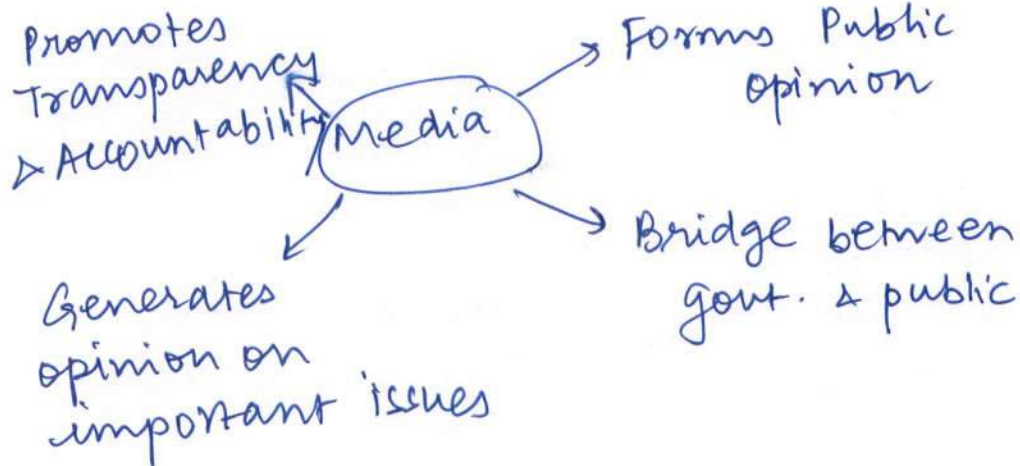 Promotes
Transparency
& Accountability
Media
Forms Public
opinion
Bridge between
govt. & public
Generates
opinion on
important issues